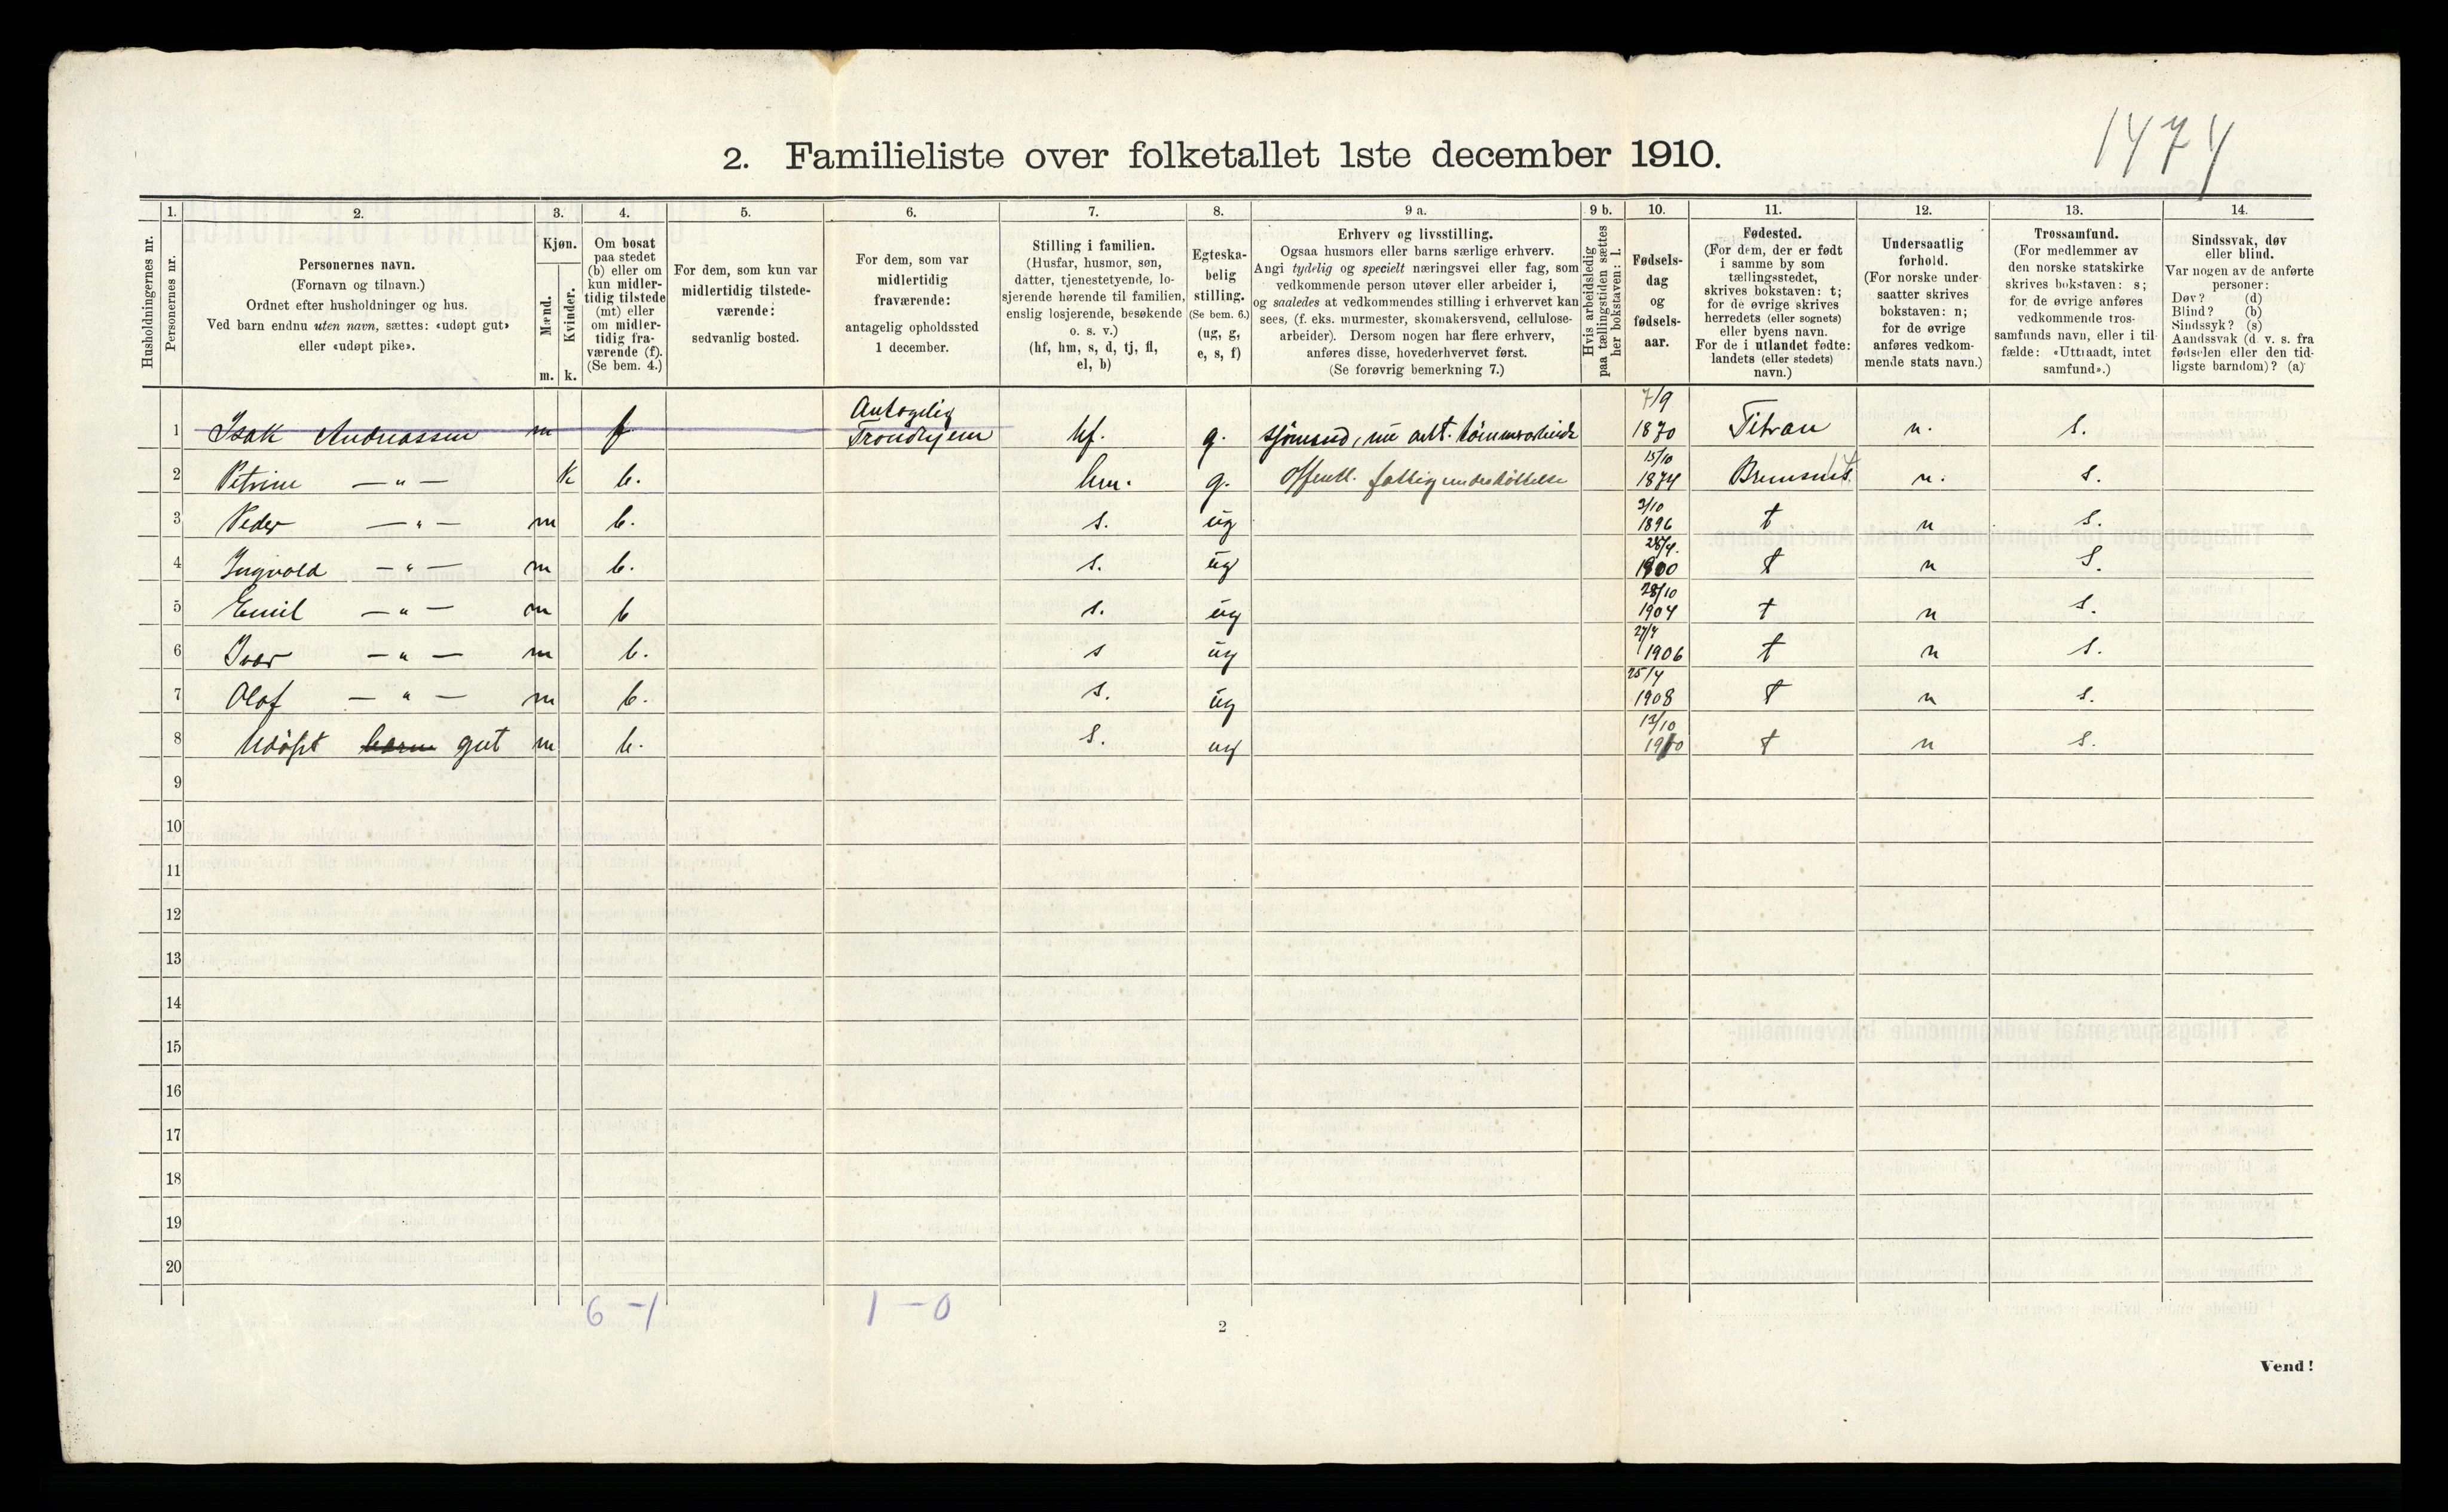 1474
2. Familieliste over folketallet 1ste december 1910.
Husholdningernes nr.
1.
Personernes nr.
2.
Personernes navn.
(Fornavn og tilnavn.)
Ordnet efter husholdninger og hus.
Ved barn endnu uten navn, sættes: «udøpt gut»
eller «udøpt pike».
3.
Kjøn.
Mænd.
Kvinder.
m. k.
4.
Om bosat
paa stedet
(b) eller om
kun midler-
tidig tilstede
(mt) eller
om midler-
tidig fra-
værende (f).
(Se bem. 4.)
5.
For dem, som kun var
midlertidig tilstede-
værende:
sedvanlig bosted.
6.
For dem, som var
midlertidig
fraværende:
antagelig opholdssted
1 december.
7.
Stilling i familien.
(Husfar, husmor, søn,
datter, tjenestetyende, lo-
sjerende hørende til familien,
enslig losjerende, besøkende
o. s. v.)
(hf, hm, s, d, tj, fl,
el, b)
8.
Egteska-
belig
stilling.
(Se bem. 6.)
(ug, g,
e, s, f)
9 a.
Erhverv og livsstilling.
Ogsaa husmors eller barns særlige erhverv.
Angi tydelig og specielt næringsvei eller fag, som
vedkommende person utøver eller arbeider i,
og saaledes at vedkommendes stilling i erhvervet kan
sees, (f. eks. murmester, skomakersvend, cellulose-
arbeider). Dersom nogen har flere erhverv,
anføres disse, hovederhvervet først.
(Se forøvrig bemerkning 7.)
9 b.
Hvis arbeidsledig
paa tællingstiden sættes
her bokstaven: l.
10.
Fødsels-
dag
og
fødsels-
aar.
11.
Fødested.
(For dem, der er født
i samme by som
tællingsstedet,
skrives bokstaven: t;
for de øvrige skrives
herredets (eller sognets)
eller byens navn.
For de i utlandet fødte:
landets (eller stedets)
navn.)
12.
Undersaatlig
forhold.
(For norske under-
saatter skrives
bokstaven: n;
for de øvrige
anføres vedkom-
mende stats navn.)
13.
Trossamfund.
(For medlemmer av
den norske statskirke
skrives bokstaven: s;
for de øvrige anføres
vedkommende tros-
samfunds navn, eller i til-
fælde: «Uttraadt, intet
samfund».)
14.
Sindssvak, døv
eller blind.
Var nogen av de anførte
personer:
Døv? (d)
Blind? (b)
Sindssyk? (s)
Aandssvak (d. v. s. fra
fødselen eller den tid-
ligste barndom)? (a)
1 Isak Andreassen m f Antagelig Trondhjem hf. g. sjømand, nu 7/9 1870 Titran n. s.
2 Petrine — " — k b. hm. g. Offentl. fattigunderstøttelse 15/10 1874 Bremsnes n. s.
3 Peder — " — m b. s. ug 3/10 1896 t n s.
4 Ingvald — " — m b. s. ug 28/4. 1900 t n s.
5 Emil — " — m b s. ug 28/10 1904 t n s.
6 Ivar — " — m b. s ug 27/4 1906 t n s.
7 Olaf — " — m b. s. ug 25/4 1908 t n s.
8 Udøpt barn gut m b. s. ug 13/10 1910 t n s.
9
10
11
12
13
14
15
16
17
18
19
20
6 – 1 1 – 0
2
Vend!